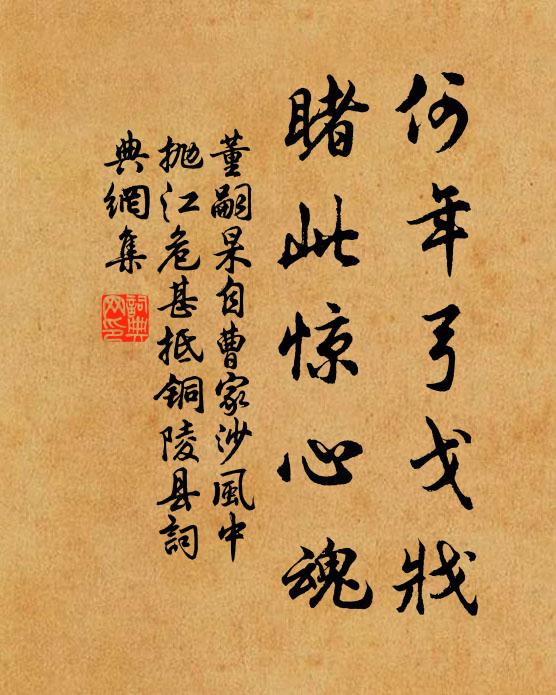 何年弓戈戕
睹此惊心魂
董嗣杲自曹家沙風中
抛江危甚抵铜陵县詞
典網集
詞典
网印